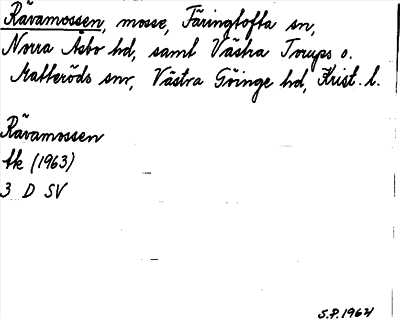 Rävamossen, mosse, Färingtofta sn,
Norra Åsbo hd, samt Västra Torups o.
Matteröds snr, Västra Göinge hd, Krist. l.
Rävamossen
tk (1963)
3 D SV
S.P. 1964